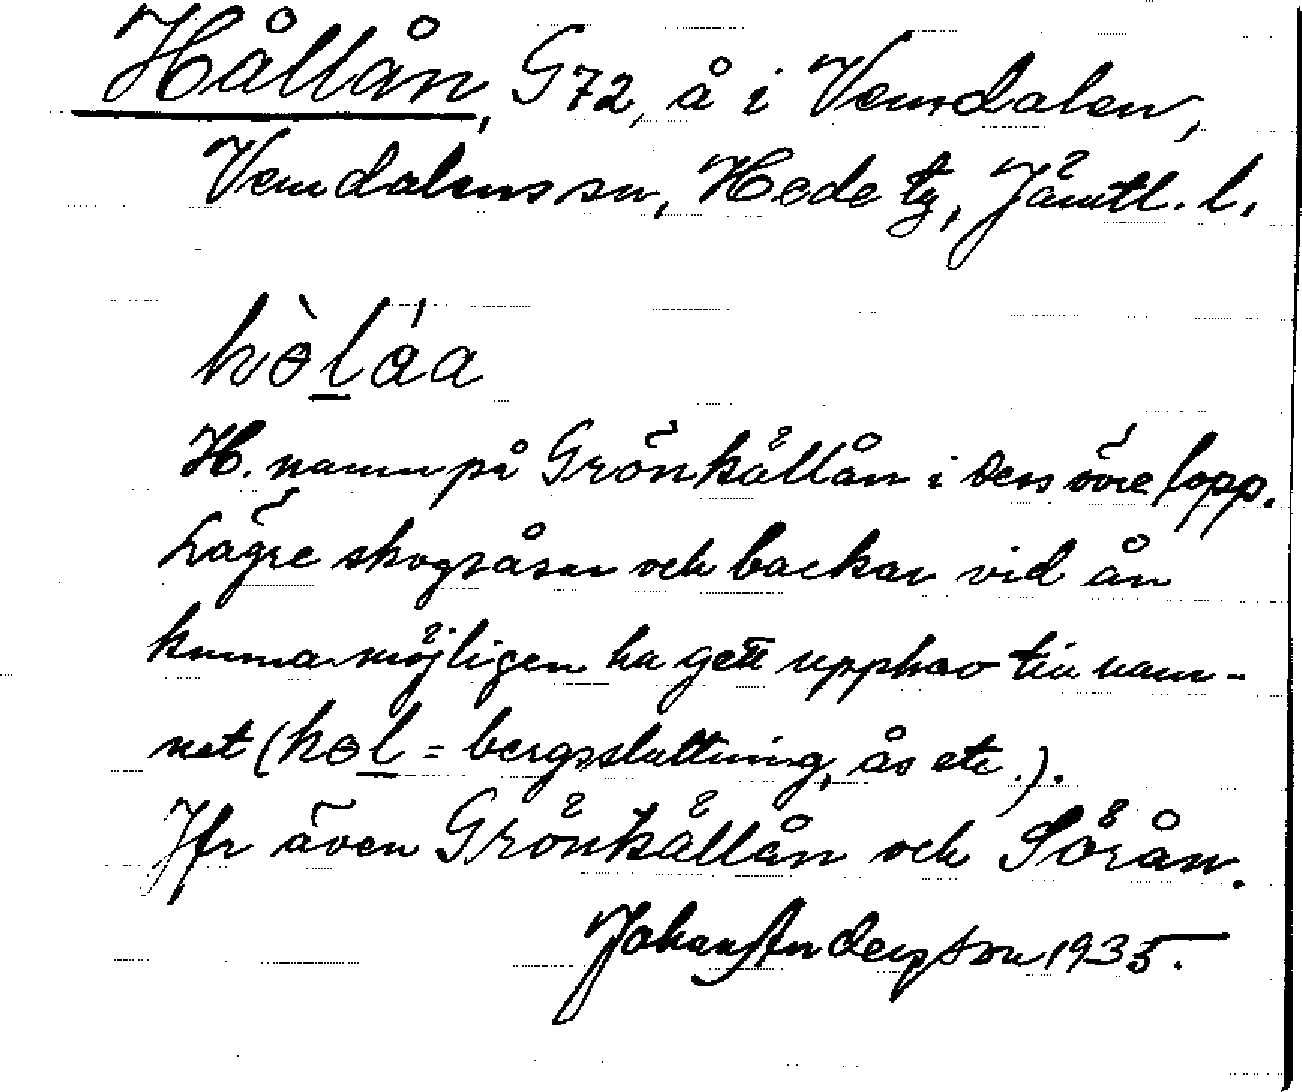 Hållån, G72, å i Vemdalen,
Vemdalens sn, Hede tg, Jämtl. l.
hòl̲áa
H. namn på Grönkällån i dess övre lopp.
Lägre skogsåsar och backar vid ån
kunna möjligen ha gett upphov till nam-
net (hɵl̲ = bergssluttning, ås etc.).
Jfr även Grönkällån och Sörån.
Johan Andersson 1935.